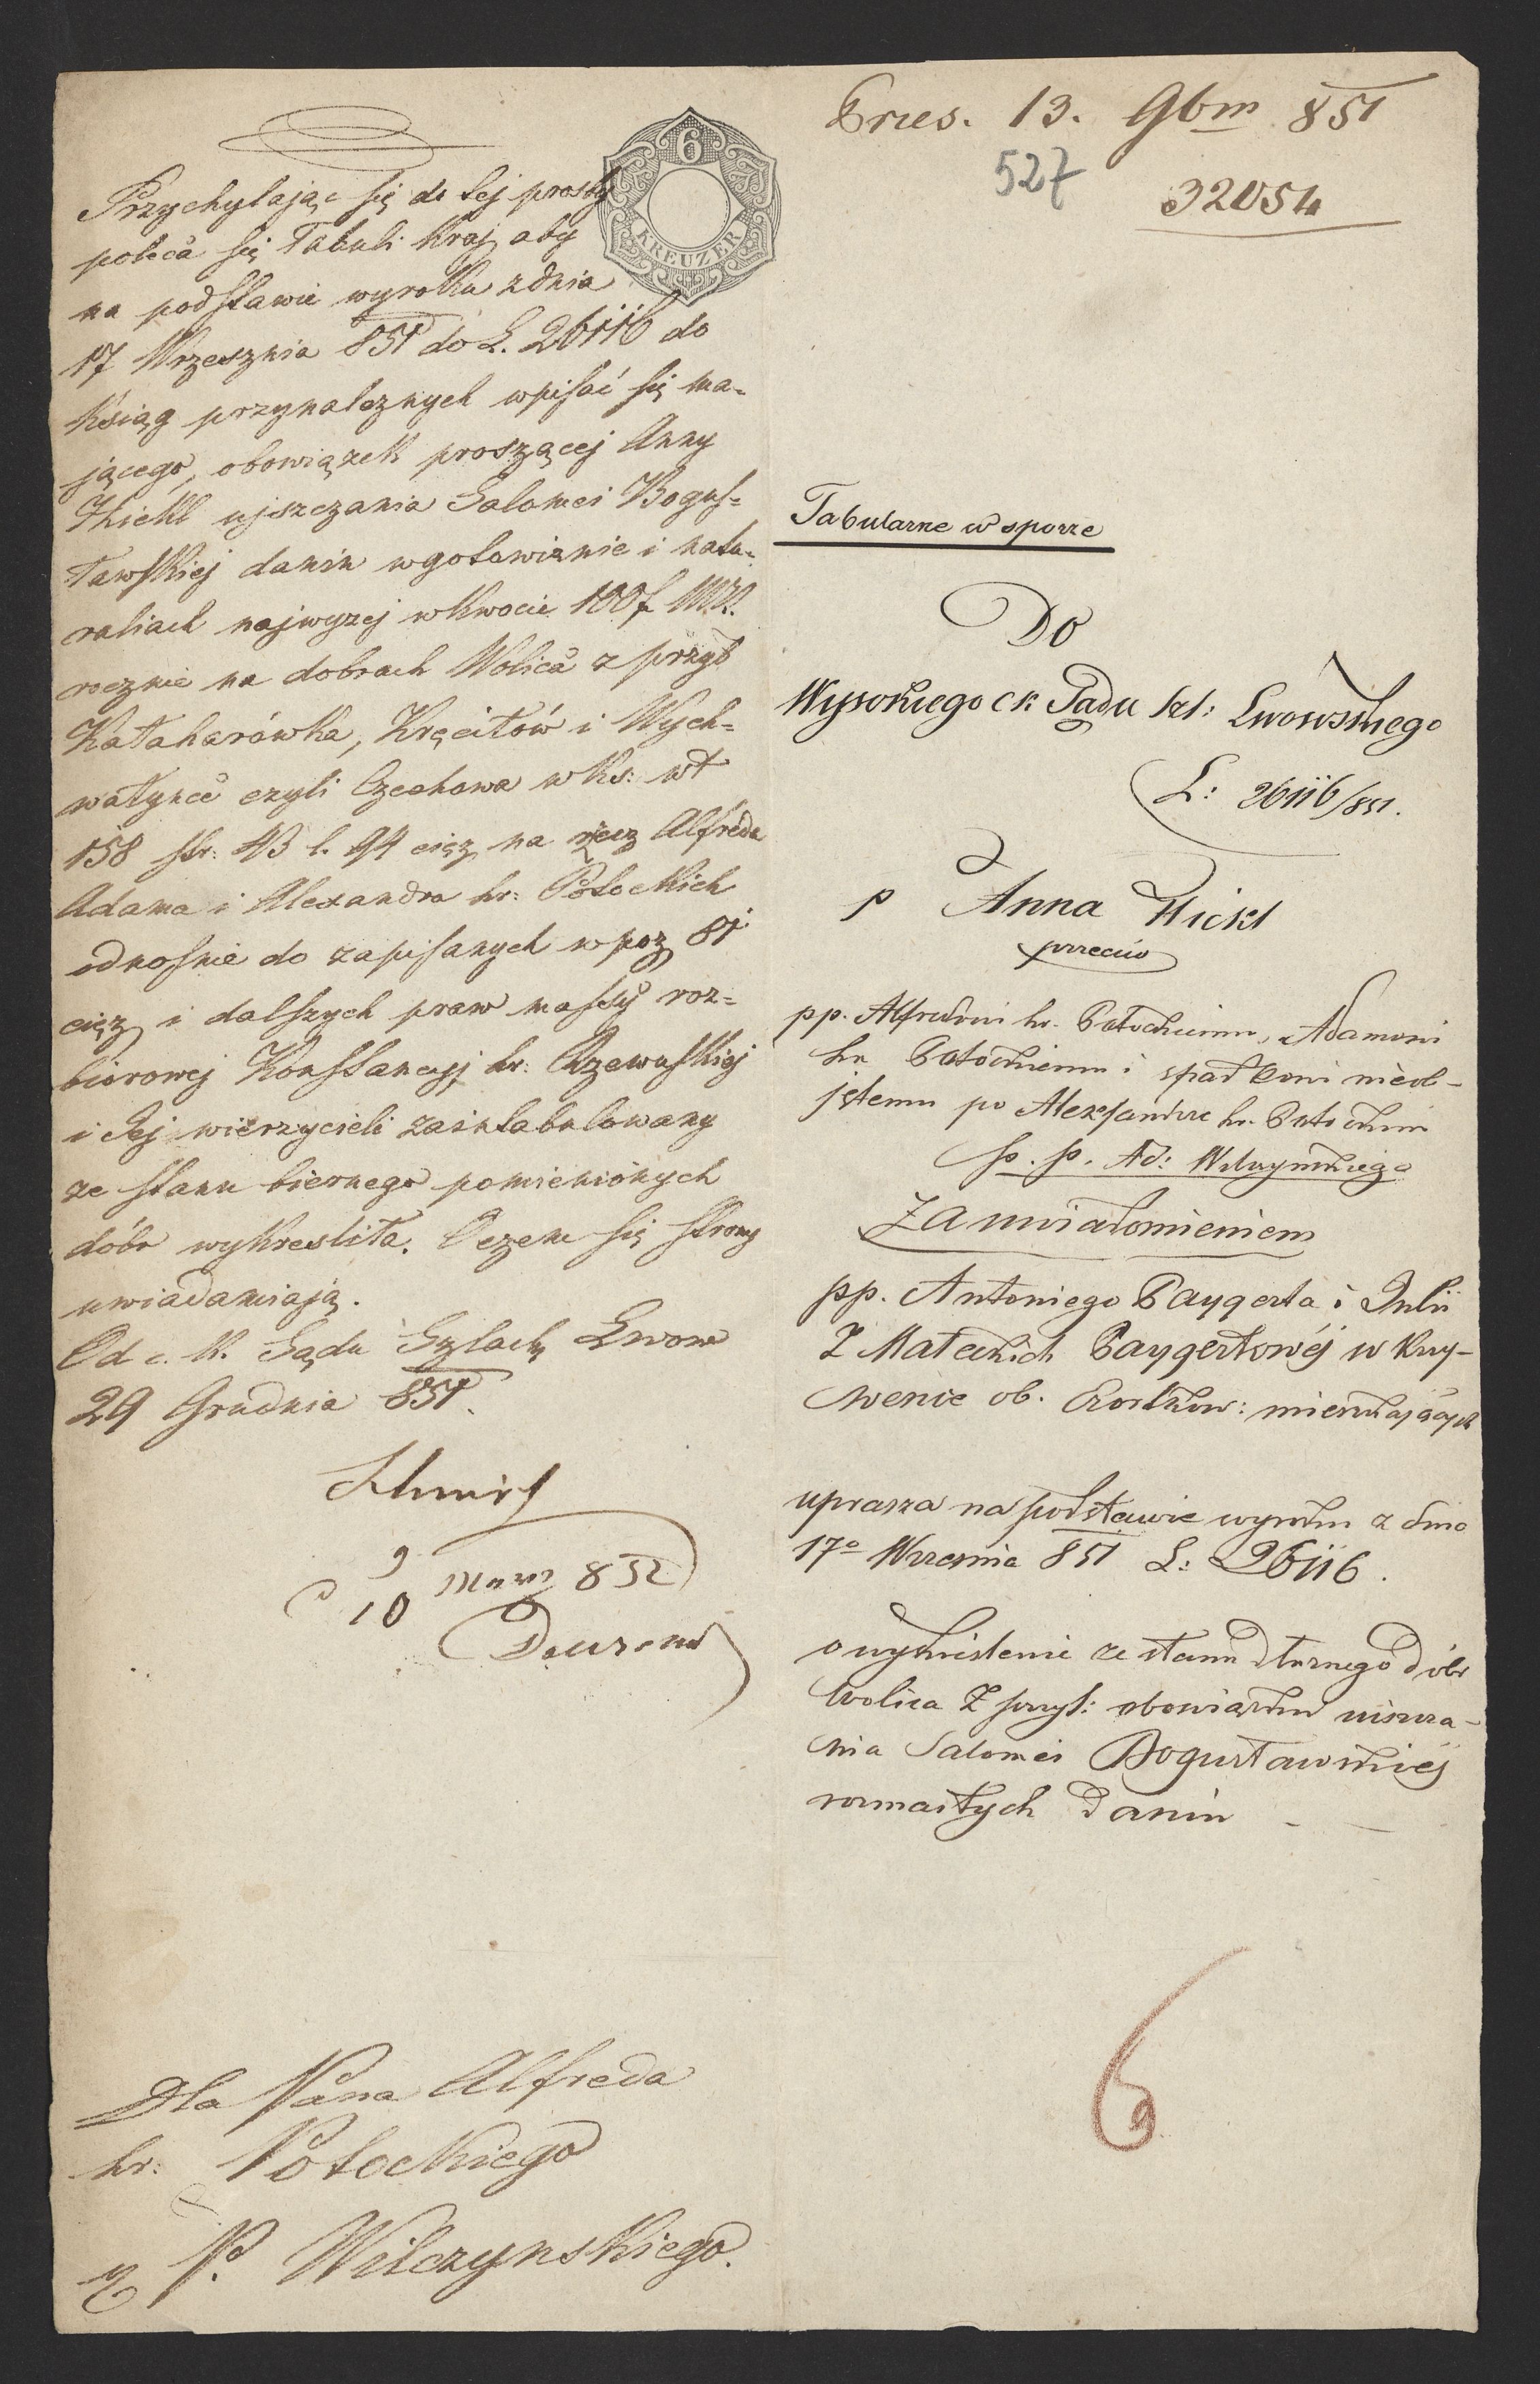 Przychylając się do tej prosby
poleca się Tabuli Kraj. aby
na podstawie wyroku z dnia
17 Wrzesznia 851 do L. 26116 do
Ksiąg przynaleznych wpisać się ma=
jącego, obowiązek proszącej Anny
Hickl ujszczania Salomei Bogus=
ławskiej danin w gotowiznie i natu=
raliach najwyzej w kwocie 100f MK.
rocznie na dobrach Wolica z przyl
Kataharówka, Kręcitów i Wych=
watynce czyli Czechowa w Ks: wł
158 str: 43 l. 94 cięz. na rzecz Alfreda
Adama i Alexandra hr: Potockich
odnosnie do zapisanych w poz 81
cięz. i dalszych praw massy roz=
biorowej Konstancyj hr: Rzewuskiej
i Jej wierzycieli zaintabulowany
ze stanu biernego pomienionych
dóbr wykreslila. O czem się strony
uwiadamiają.
Od c. K. Sądu Szlach. Lwow
29 Grudnia 851.
9
10 März 852
Dla Pana Alfreda
hr: Potockiego
P. Wilczynskiego.
6
KREUZER
Prues. 13. 9bm 851
527
32054
Tabularne w sporze
Do
Wysokiego CK Sądu szl: Lwowskiego
L: 26116/851.
P Anna Hickl
przeciw
pp. Alfredowi hr. Potockiemu, Adamowi
hr. Potockiemu i spadkowi nieob-
jętemu po Alexandrze hr. Potockim
p. p. Ad: Wilczynskiego
Zauwiadomieniem
pp. Antoniego Paygerta i Julii
Z Małeckich Paygertowéj w Kry-
wenie ob. Czortkow: mieszkających
uprasza na podstawie wyroku z dnia
17o Wrzesnia 851 L: 26116.
o wykreslenie ze stanu dłuznego dóbr
Wolica Z przyl: obowiązku uiszcza-
nia Salomei Bogusławskiéj
rozmaitych Danin
6